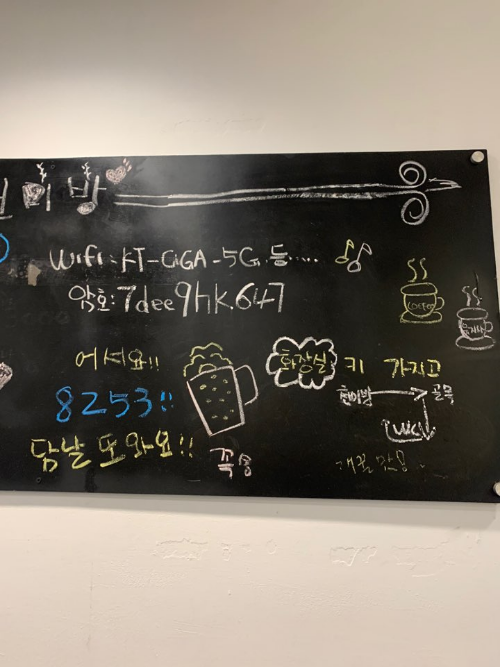 미방
Wifi : KT-GiGA-5G. 등.....
암호: 7dee9hk647
어서요!!
8253!!
담날 또 와요!!
꼭용
화장실 키 가지고
현미방 → 골목
WC
COFFEE